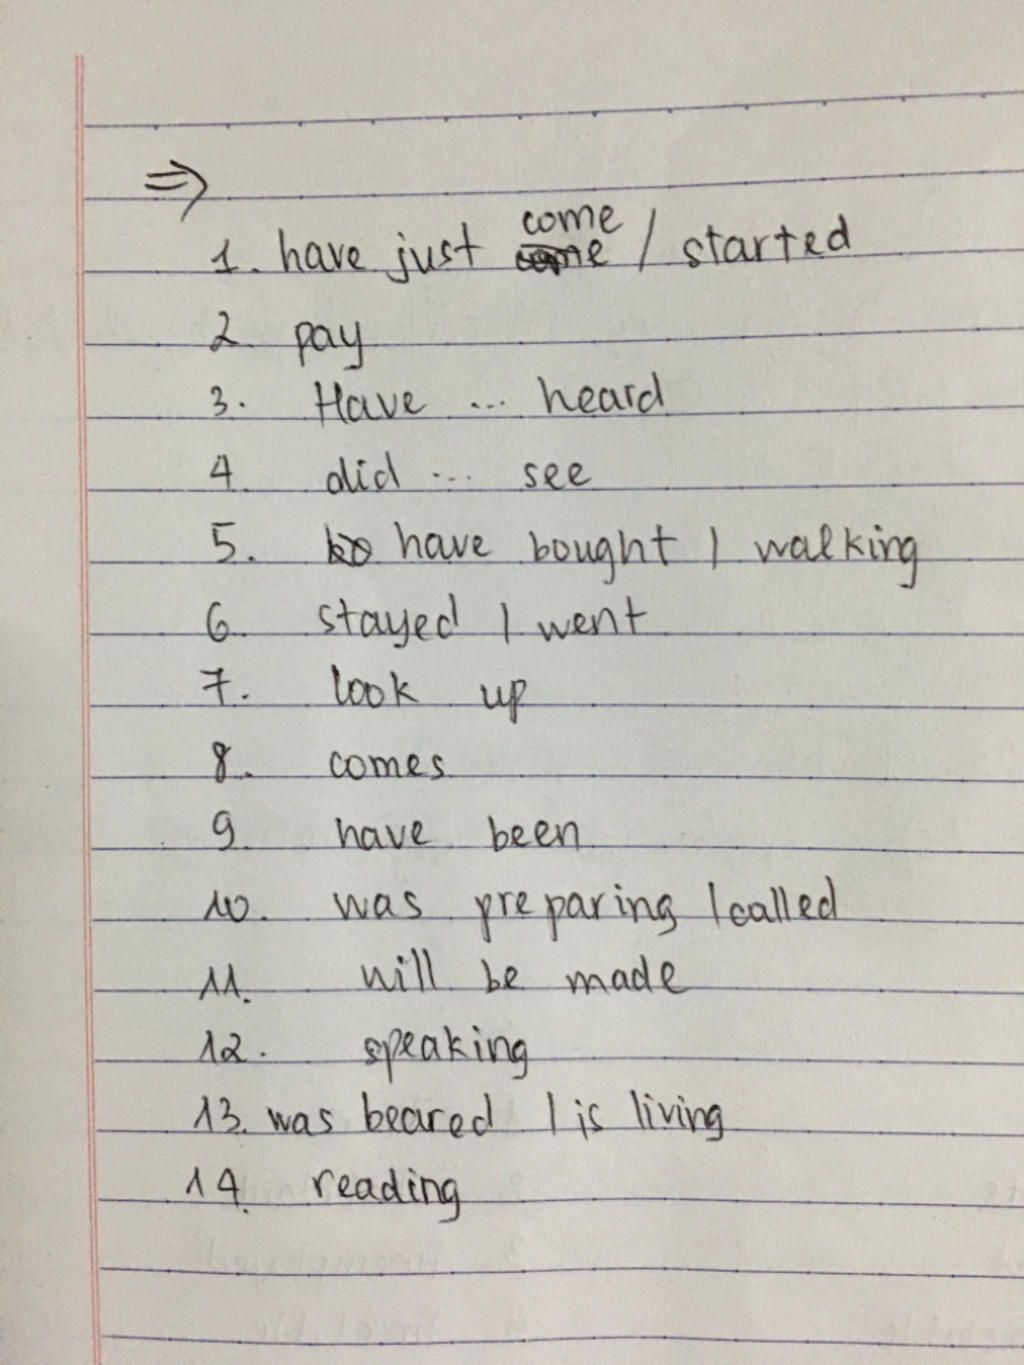 ⇒
1. have just come / started
2. pay
3. Have ... heard
4. did ... see
5. have bought / walking
6. stayed / went
7. look up
8. comes
9. have been
10. was preparing / called
11. will be made
12. speaking
13. was beared / is living
14. reading